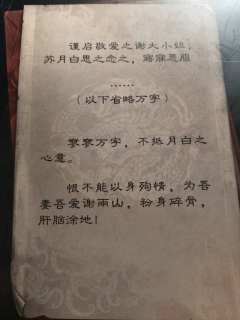 谨启敬爱之谢大小姐，
苏月白思之念之，寤寐思服
……
（以下省略万字）
寥寥万字，不抵月白之
心意。
恨不能以身殉情，为吾
妻吾爱谢雨山，粉身碎骨，
肝脑涂地！